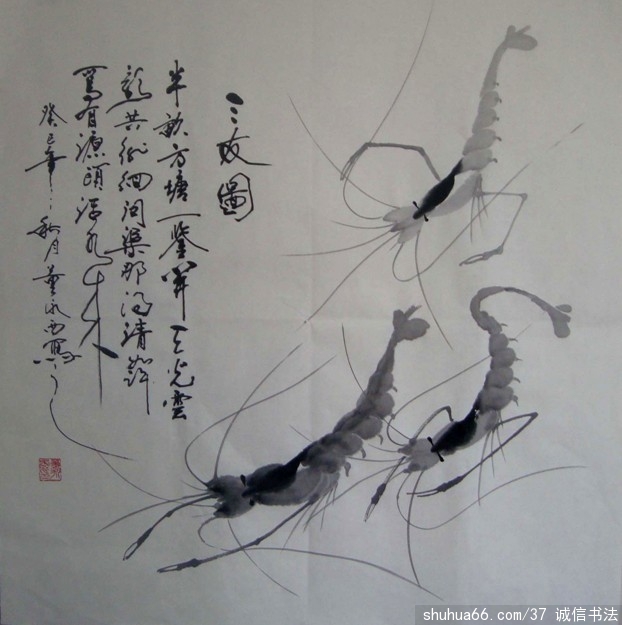 三友圖
半畝方塘一鑒開天光雲
影共徘徊问渠那得清如許
爲有源頭活水来
癸巳年秋月董永西寫
shuhua66.com/37 诚信书法